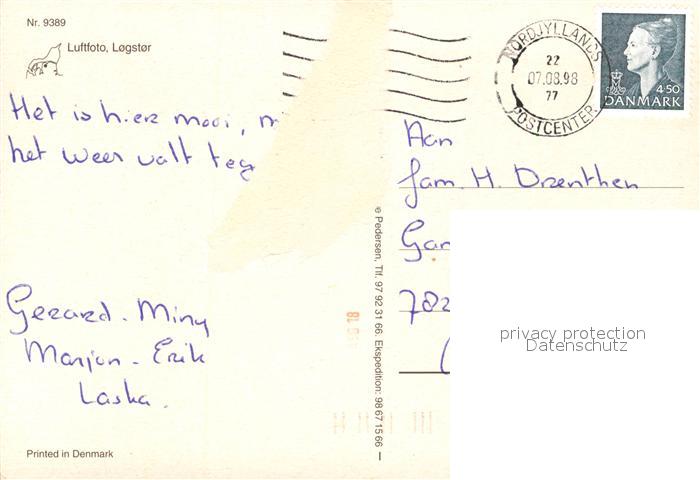 Nr. 9389
Luftfoto, Løgstør
Het is hier mooi,
het weer valt teg
Gerard - Miny
Marjon - Erik
Laska.
Printed in Denmark
© Pedersen, Tlf. 97 92 31 66. Ekspedition: 98 67 15 66
NORDJYLLANDS
22
07.08.98
77
POSTCENTER
4.50
DANMARK
Aan
fam. H. Drenthen
Gar
782
privacy protection
Datenschutz